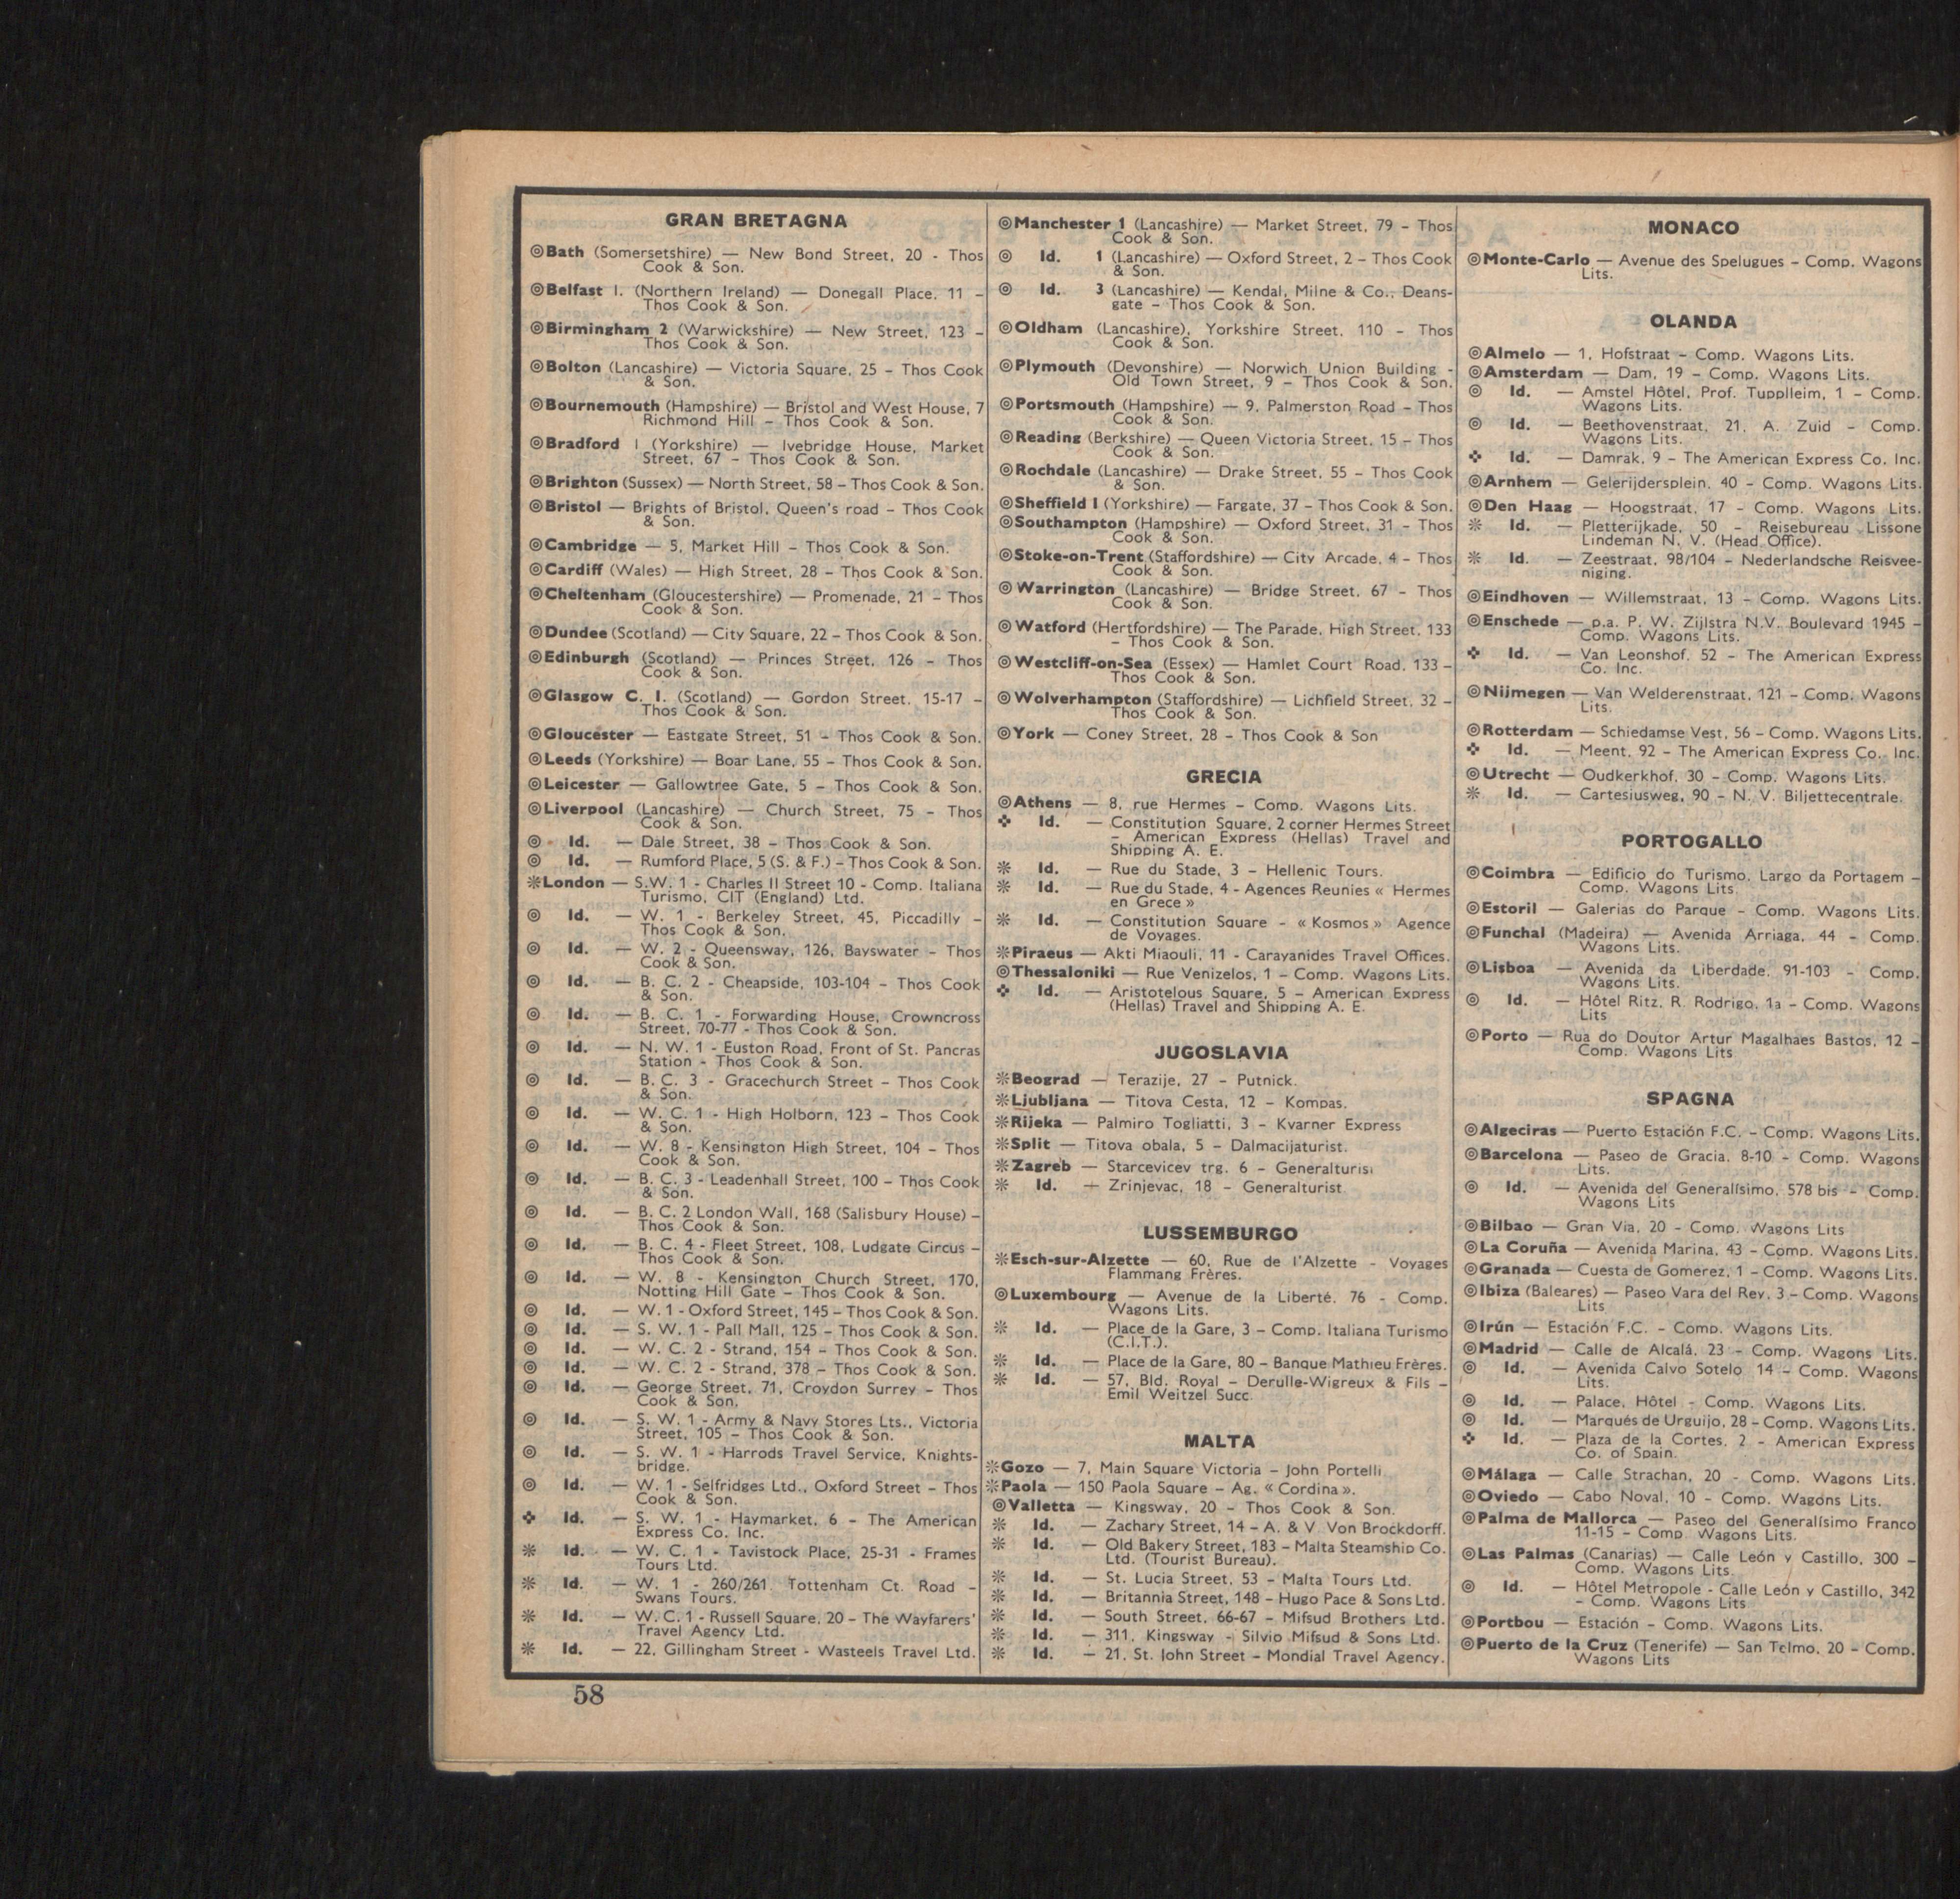 GRAN BRETAGNA
◎Bath (Somersetshire) — New Bond Street, 20 - Thos
Cook & Son.
◎Belfast I. (Northern Ireland) — Donegall Place, 11 –
Thos Cook & Son.
◎Birmingham 2 (Warwickshire) — New Street, 123 –
Thos Cook & Son.
◎Bolton (Lancashire) — Victoria Square, 25 – Thos Cook
& Son.
◎Bournemouth (Hampshire) — Bristol and West House, 7
Richmond Hill – Thos Cook & Son.
◎Bradford 1 (Yorkshire) — Ivebridge House, Market
Street, 67 – Thos Cook & Son.
◎Brighton (Sussex) — North Street, 58 – Thos Cook & Son.
◎Bristol — Brights of Bristol, Queen's road – Thos Cook
& Son.
◎Cambridge — 5, Market Hill – Thos Cook & Son.
◎Cardiff (Wales) — High Street, 28 – Thos Cook & Son.
◎Cheltenham (Gloucestershire) — Promenade, 21 – Thos
Cook & Son.
◎Dundee (Scotland) — City Square, 22 – Thos Cook & Son.
◎Edinburgh (Scotland) — Princes Street, 126 – Thos
Cook & Son.
◎Glasgow C. I. (Scotland) — Gordon Street, 15-17 –
Thos Cook & Son.
◎Gloucester — Eastgate Street, 51 – Thos Cook & Son.
◎Leeds (Yorkshire) — Boar Lane, 55 – Thos Cook & Son.
◎Leicester — Gallowtree Gate, 5 – Thos Cook & Son.
◎Liverpool (Lancashire) — Church Street, 75 – Thos
Cook & Son.
◎ Id. — Dale Street, 38 – Thos Cook & Son.
◎ Id. — Rumford Place, 5 (S. & F.) – Thos Cook & Son.
※London — S.W. 1 - Charles II Street 10 - Comp. Italiana
Turismo, CIT (England) Ltd.
◎ Id. — W. 1 - Berkeley Street, 45, Piccadilly –
Thos Cook & Son.
◎ Id. — W. 2 - Queensway, 126, Bayswater – Thos
Cook & Son.
◎ Id. — B. C. 2 - Cheapside, 103-104 – Thos Cook
& Son.
◎ Id. — B. C. 1 - Forwarding House, Crowncross
Street, 70-77 - Thos Cook & Son.
◎ Id. — N. W. 1 - Euston Road, Front of St. Pancras
Station - Thos Cook & Son.
◎ Id. — B. C. 3 - Gracechurch Street – Thos Cook
& Son.
◎ Id. — W. C. 1 - High Holborn, 123 – Thos Cook
& Son.
◎ Id. — W. 8 - Kensington High Street, 104 – Thos
Cook & Son.
◎ Id. — B. C. 3 - Leadenhall Street, 100 – Thos Cook
& Son.
◎ Id. — B. C. 2 London Wall, 168 (Salisbury House) –
Thos Cook & Son.
◎ Id. — B. C. 4 - Fleet Street, 108, Ludgate Circus –
Thos Cook & Son.
◎ Id. — W. 8 - Kensington Church Street, 170,
Notting Hill Gate – Thos Cook & Son.
◎ Id. — W. 1 - Oxford Street, 145 – Thos Cook & Son.
◎ Id. — S. W. 1 - Pall Mall, 125 – Thos Cook & Son.
◎ Id. — W. C. 2 - Strand, 154 – Thos Cook & Son.
◎ Id. — W. C. 2 - Strand, 378 – Thos Cook & Son.
◎ Id. — George Street, 71, Croydon Surrey – Thos
Cook & Son.
◎ Id. — S. W. 1 - Army & Navy Stores Lts., Victoria
Street, 105 – Thos Cook & Son.
◎ Id. — S. W. 1 - Harrods Travel Service, Knights-
bridge.
◎ Id. — W. 1 - Selfridges Ltd., Oxford Street – Thos
Cook & Son.
✤ Id. — S. W. 1 - Haymarket, 6 – The American
Express Co. Inc.
※ Id. — W. C. 1 - Tavistock Place, 25-31 - Frames
Tours Ltd.
※ Id. — W. 1 - 260/261 Tottenham Ct. Road –
Swans Tours.
※ Id. — W. C. 1 - Russell Square, 20 – The Wayfarers'
Travel Agency Ltd.
※ Id. — 22, Gillingham Street - Wasteels Travel Ltd.
◎Manchester 1 (Lancashire) — Market Street, 79 – Thos
Cook & Son.
◎ Id. 1 (Lancashire) — Oxford Street, 2 – Thos Cook
& Son.
◎ Id. 3 (Lancashire) — Kendal, Milne & Co., Deans-
gate – Thos Cook & Son.
◎Oldham (Lancashire), Yorkshire Street, 110 – Thos
Cook & Son.
◎Plymouth (Devonshire) — Norwich Union Building -
Old Town Street, 9 – Thos Cook & Son.
◎Portsmouth (Hampshire) — 9, Palmerston Road – Thos
Cook & Son.
◎Reading (Berkshire) — Queen Victoria Street, 15 – Thos
Cook & Son.
◎Rochdale (Lancashire) — Drake Street, 55 – Thos Cook
& Son.
◎Sheffield I (Yorkshire) — Fargate, 37 – Thos Cook & Son.
◎Southampton (Hampshire) — Oxford Street, 31 – Thos
Cook & Son.
◎Stoke-on-Trent (Staffordshire) — City Arcade, 4 – Thos
Cook & Son.
◎Warrington (Lancashire) — Bridge Street, 67 – Thos
Cook & Son.
◎Watford (Hertfordshire) — The Parade, High Street, 133
– Thos Cook & Son.
◎Westcliff-on-Sea (Essex) — Hamlet Court Road, 133 –
Thos Cook & Son.
◎Wolverhampton (Staffordshire) — Lichfield Street, 32 –
Thos Cook & Son.
◎York — Coney Street, 28 – Thos Cook & Son
GRECIA
◎Athens — 8, rue Hermes – Comp. Wagons Lits.
✤ Id. — Constitution Square, 2 corner Hermes Street
– American Express (Hellas) Travel and
Shipping A. E.
※ Id. — Rue du Stade, 3 – Hellenic Tours.
※ Id. — Rue du Stade, 4 - Agences Reunies « Hermes
en Grece »
※ Id. — Constitution Square - « Kosmos » Agence
de Voyages.
※Piraeus — Akti Miaouli, 11 - Carayanides Travel Offices.
◎Thessaloniki — Rue Venizelos, 1 – Comp. Wagons Lits.
✤ Id. — Aristotelous Square, 5 – American Express
(Hellas) Travel and Shipping A. E.
JUGOSLAVIA
※Beograd — Terazije, 27 – Putnick.
※Ljubljana — Titova Cesta, 12 – Kompas.
※Rijeka — Palmiro Togliatti, 3 – Kvarner Express
※Split — Titova obala, 5 – Dalmacijaturist.
※Zagreb — Starcevicev trg. 6 – Generalturist
※ Id. — Zrinjevac, 18 – Generalturist
LUSSEMBURGO
※Esch-sur-Alzette — 60, Rue de l'Alzette - Voyages
Flammang Frères.
◎Luxembourg — Avenue de la Liberté, 76 - Comp.
Wagons Lits.
※ Id. — Place de la Gare, 3 – Comp. Italiana Turismo
(C.I.T.).
※ Id. — Place de la Gare, 80 – Banque Mathieu Frères.
※ Id. — 57, Bld. Royal – Derulle-Wigreux & Fils –
Emil Weitzel Succ
MALTA
※Gozo — 7, Main Square Victoria – John Portelli
※Paola — 150 Paola Square – Ag. « Cordina ».
◎Valletta — Kingsway, 20 – Thos Cook & Son.
※ Id. — Zachary Street, 14 – A. & V. Von Brockdorff.
※ Id. — Old Bakery Street, 183 – Malta Steamship Co.
Ltd. (Tourist Bureau).
※ Id. — St. Lucia Street, 53 – Malta Tours Ltd.
※ Id. — Britannia Street, 148 – Hugo Pace & Sons Ltd.
※ Id. — South Street, 66-67 – Mifsud Brothers Ltd.
※ Id. — 311, Kingsway - Silvio Mifsud & Sons Ltd.
※ Id. — 21, St. John Street – Mondial Travel Agency.
MONACO
◎Monte-Carlo — Avenue des Spelugues – Comp. Wagons
Lits.
OLANDA
◎Almelo — 1, Hofstraat – Comp. Wagons Lits.
◎Amsterdam — Dam, 19 – Comp. Wagons Lits.
◎ Id. — Amstel Hôtel, Prof. Tupplleim, 1 – Comp.
Wagons Lits.
◎ Id. — Beethovenstraat, 21, A. Zuid – Comp.
Wagons Lits.
✤ Id. — Damrak, 9 – The American Express Co. Inc.
◎Arnhem — Gelerijdersplein, 40 – Comp. Wagons Lits.
◎Den Haag — Hoogstraat, 17 – Comp. Wagons Lits.
※ Id. — Pletterijkade, 50 – Reisebureau Lissone
Lindeman N. V. (Head Office).
※ Id. — Zeestraat, 98/104 – Nederlandsche Reisvee-
niging.
◎Eindhoven — Willemstraat, 13 – Comp. Wagons Lits.
◎Enschede — p.a. P. W. Zijlstra N.V. Boulevard 1945 –
Comp. Wagons Lits.
✤ Id. — Van Leonshof, 52 – The American Express
Co. Inc.
◎Nijmegen — Van Welderenstraat, 121 – Comp. Wagons
Lits.
◎Rotterdam — Schiedamse Vest, 56 – Comp. Wagons Lits.
✤ Id. — Meent, 92 – The American Express Co. Inc.
◎Utrecht — Oudkerkhof, 30 – Comp. Wagons Lits.
※ Id. — Cartesiusweg, 90 – N. V. Biljettecentrale.
PORTOGALLO
◎Coimbra — Edificio do Turismo, Largo da Portagem –
Comp. Wagons Lits
◎Estoril — Galerias do Parque – Comp. Wagons Lits.
◎Funchal (Madeira) — Avenida Arriaga, 44 – Comp.
Wagons Lits.
◎Lisboa — Avenida da Liberdade, 91-103 – Comp.
Wagons Lits.
◎ Id. — Hôtel Ritz, R. Rodrigo, 1a – Comp. Wagons
Lits
◎Porto — Rua do Doutor Artur Magalhaes Bastos, 12 –
Comp. Wagons Lits
SPAGNA
◎Algeciras — Puerto Estación F.C. – Comp. Wagons Lits.
◎Barcelona — Paseo de Gracia, 8-10 – Comp. Wagons
Lits.
◎ Id. — Avenida del Generalísimo, 578 bis – Comp.
Wagons Lits
◎Bilbao — Gran Via, 20 – Comp. Wagons Lits
◎La Coruña — Avenida Marina, 43 – Comp. Wagons Lits.
◎Granada — Cuesta de Gomerez, 1 – Comp. Wagons Lits.
◎Ibiza (Baleares) — Paseo Vara del Rey, 3 – Comp. Wagons
Lits
◎Irún — Estación F.C. – Comp. Wagons Lits.
◎Madrid — Calle de Alcalá, 23 – Comp. Wagons Lits.
◎ Id. — Avenida Calvo Sotelo 14 – Comp. Wagons
Lits.
◎ Id. — Palace, Hôtel – Comp. Wagons Lits.
◎ Id. — Marqués de Urguijo, 28 – Comp. Wagons Lits.
✤ Id. — Plaza de la Cortes, 2 – American Express
Co. of Spain.
◎Málaga — Calle Strachan, 20 - Comp. Wagons Lits.
◎Oviedo — Cabo Noval, 10 – Comp. Wagons Lits.
◎Palma de Mallorca — Paseo del Generalísimo Franco
11-15 – Comp. Wagons Lits.
◎Las Palmas (Canarias) — Calle León y Castillo, 300 –
Comp. Wagons Lits.
◎ Id. — Hôtel Metropole - Calle León y Castillo, 342
– Comp. Wagons Lits
◎Portbou — Estación – Comp. Wagons Lits.
◎Puerto de la Cruz (Tenerife) — San Telmo, 20 – Comp.
Wagons Lits
58